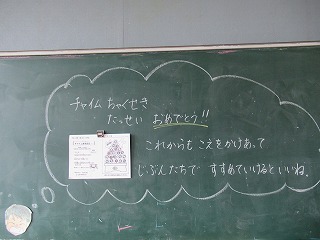 チャイム ちゃくせき
たっせい おめでとう!!
これからも こえをかけあって
じぶんたちで すすめていけるといいね。